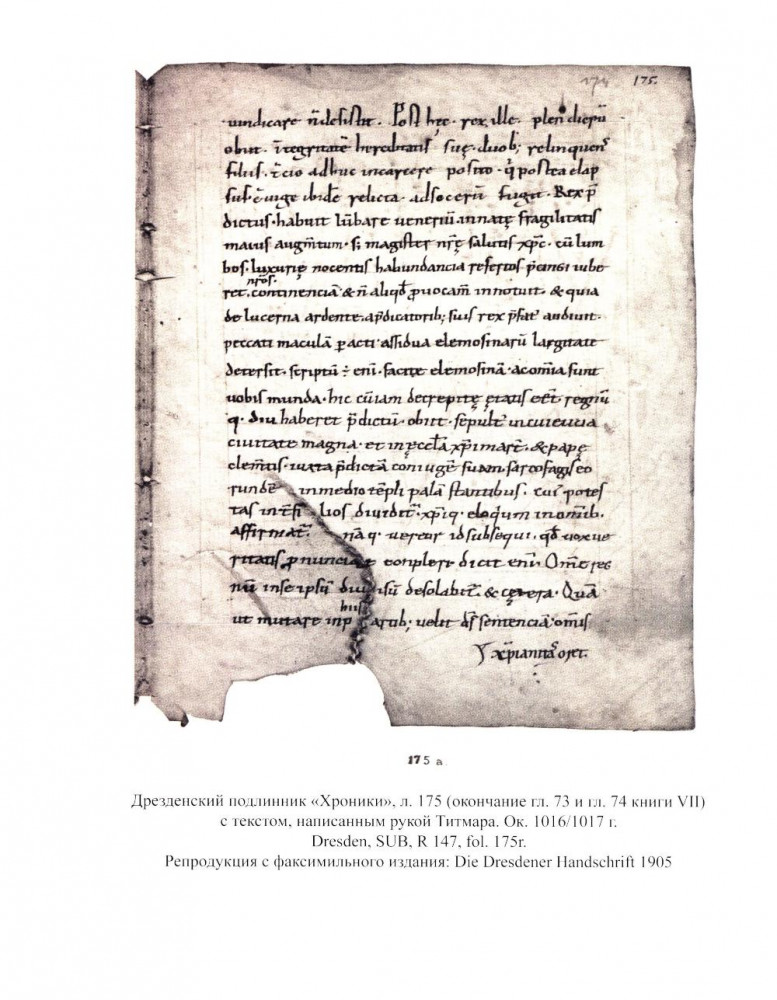 174 175.
uindicare n̄ desistit. Post hęc rex ille. plen dierū
obiit. ītegritatē hereditatis suę. duob; relinquens
filiis. t̄cio adhuc in carcere posito. q̄ postea elap
sus. ibidē relicta. ad socerū fugit. Rex p̄
dictus. habuit lūbare ueneriū. innatę fragilitatis
maius augm̄tum. s; magister nr̄ę salutis xp̄c. cū lum
bos. luxurię nocentis habundancia refertos p̄cingi iube
nr̄os.
ret. continenciā & n̄ aliqd̄ ꝓuocam̄ innotuit. & quia
de lucerna ardente. a p̄dicatorib; suis rex p̄fat' audiuit.
peccati maculā ꝑacti. assidua elemosinarū largitate
detersit. scriptū ÷ eni. facite elemosinā. & om̄ia sunt
uobis munda. hic cū iam decrepitę ętatis eēt. regnū
q. diu haberet p̄dictū. obiit. sepult' in cuieuua
ciuitate magna. et in ęccl̄a xp̄i mart̄. & papę
clem̄tis. iuxta p̄dictā coniugē suam. sarcofagis eo
rundē in medio tēpli palā stantibus. cui' potes
tas int̄ fi lios diuidit̄. xp̄iq. eloqum in om̄ib.
affirmat̄. nāq. uereor id subsequi. qd̄ uox ue
ritatis ꝓnunciat conplere. dicit eni. Om̄e reg
nū in se ipsū diuisū desolabit̄. & cętera. Quā
huis
ut mutare in p artib; uelit ds̄ sentenciā. om̄is
xp̄ianitas oret.
175 a.
Дрезденский подлинник «Хроники», л. 175 (окончание гл. 73 и гл. 74 книги VII)
с текстом, написанным рукой Титмара. Ок. 1016/1017 г.
Dresden, SUB, R 147, fol. 175r.
Репродукция с факсимильного издания: Die Dresdener Handschrift 1905